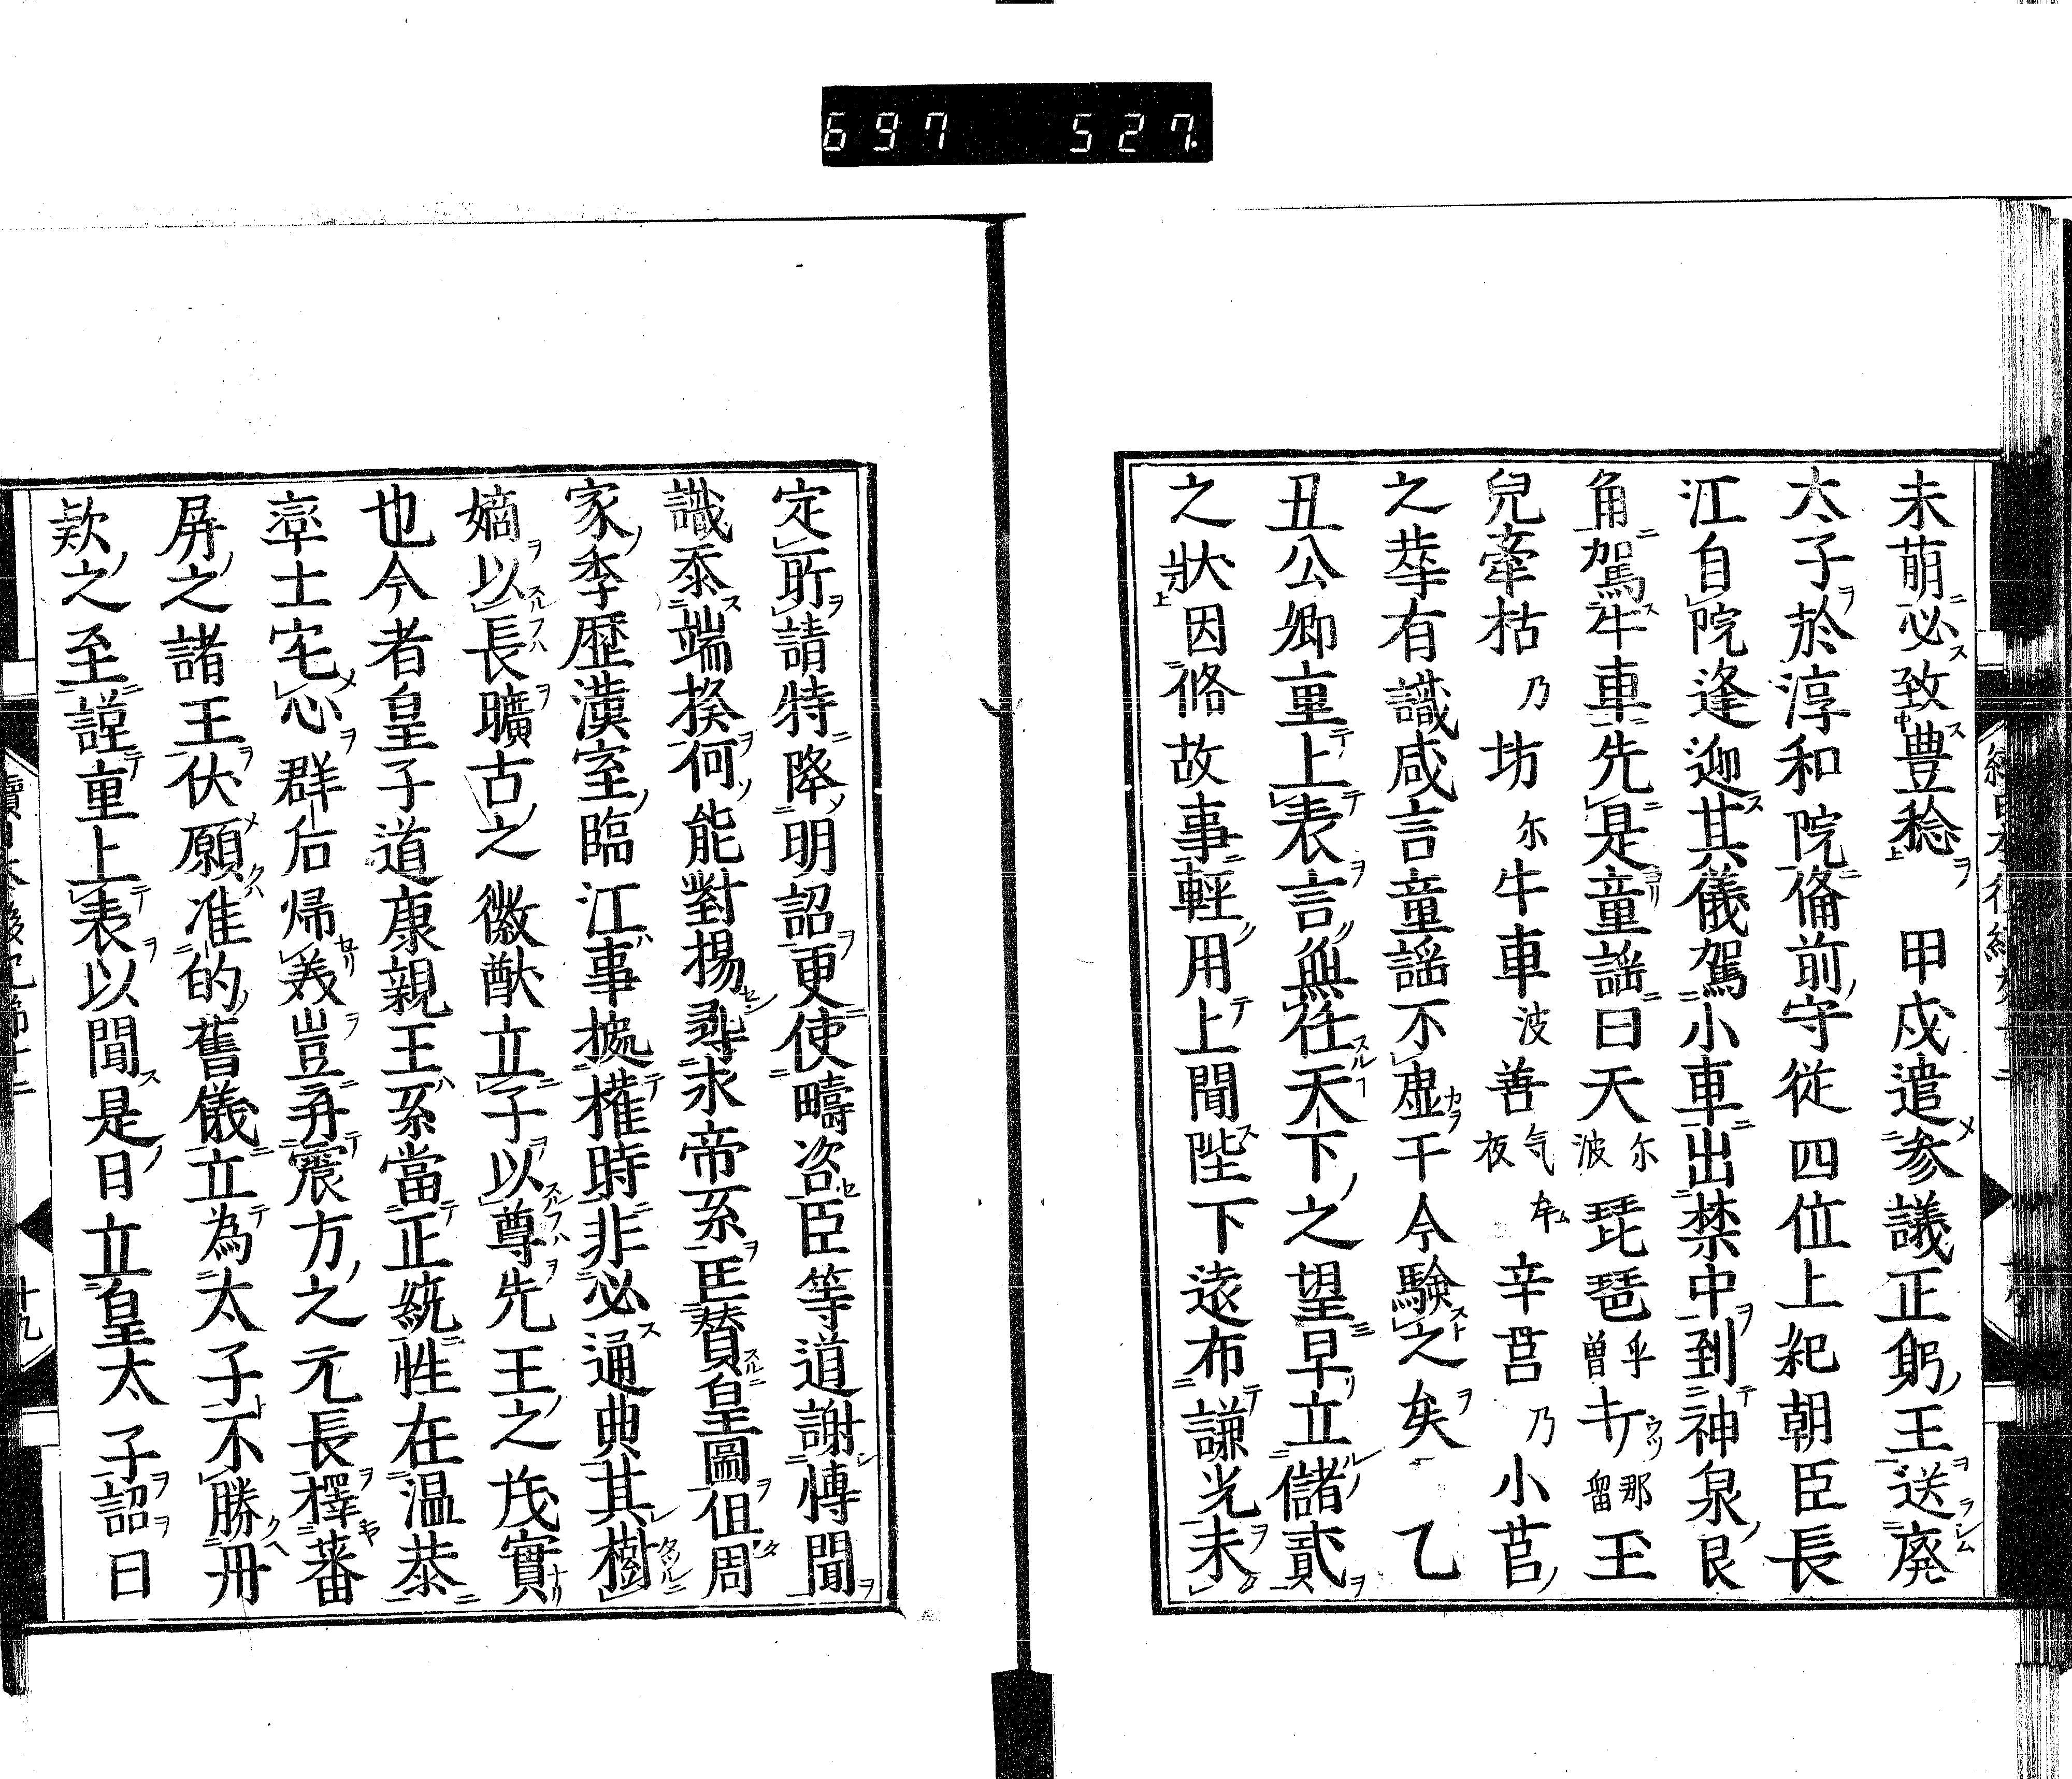 697 527
未萌必致豊稔 甲戌遣參議正躬王送廢
太子於淳和院俻前守從四位上紀朝臣長
江自院逢迎其儀駕小車出禁中到神泉艮
角駕牛車先是童謡曰天尓波琵琶乎曽那留王
兒牽枯乃坊尓牛車波善气夜牟辛苣乃小苣
之華有識咸言童謡不虚于今驗之矣 乙
丑公卿重上表言無徃天下之望早立儲貳
之狀因脩故事輕用上聞陛下逺布謙光未
定所請特降明詔更使疇咨臣等道謝愽聞
識忝端揆何能對揚尋求帝系匡賛皇圖但周
家季歴漢室臨江事據權時非必通典其樹
嫡以長曠古之徽猷立子以尊先王之茂實
也今者皇子道康親王系當正統性在温恭
率土宅心群后帰義豈再震方之元長擇蕃
屏之諸王伏願准的舊儀立為太子不勝冊
款之至謹重上表以聞是日立皇太子詔曰